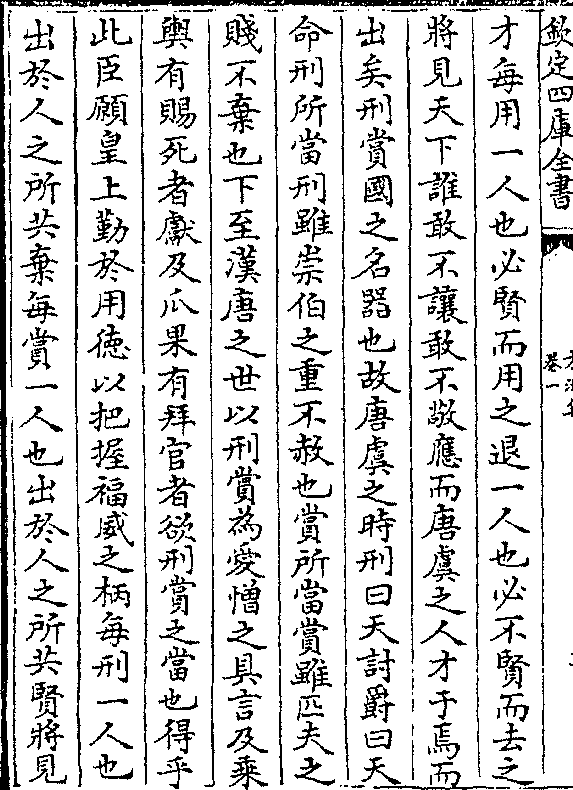 欽定四庫全書
卷一
才每用一人也必賢而用之退一人也必不賢而去之
將見天下誰敢不讓敢不敬應而唐虞之人才于焉而
出矣刑賞國之名器也故唐虞之時刑曰天討爵曰天
命刑所當刑雖崇伯之重不赦也賞所當賞雖匹夫之
賤不棄也下至漢唐之世以刑賞為愛憎之具言及乘
輿有賜死者獻及瓜果有拜官者欲刑賞之當也得乎
此臣願皇上勤於用徳以把握福威之柄每刑一人也
出於人之所共棄每賞一人也出於人之所共賢將見